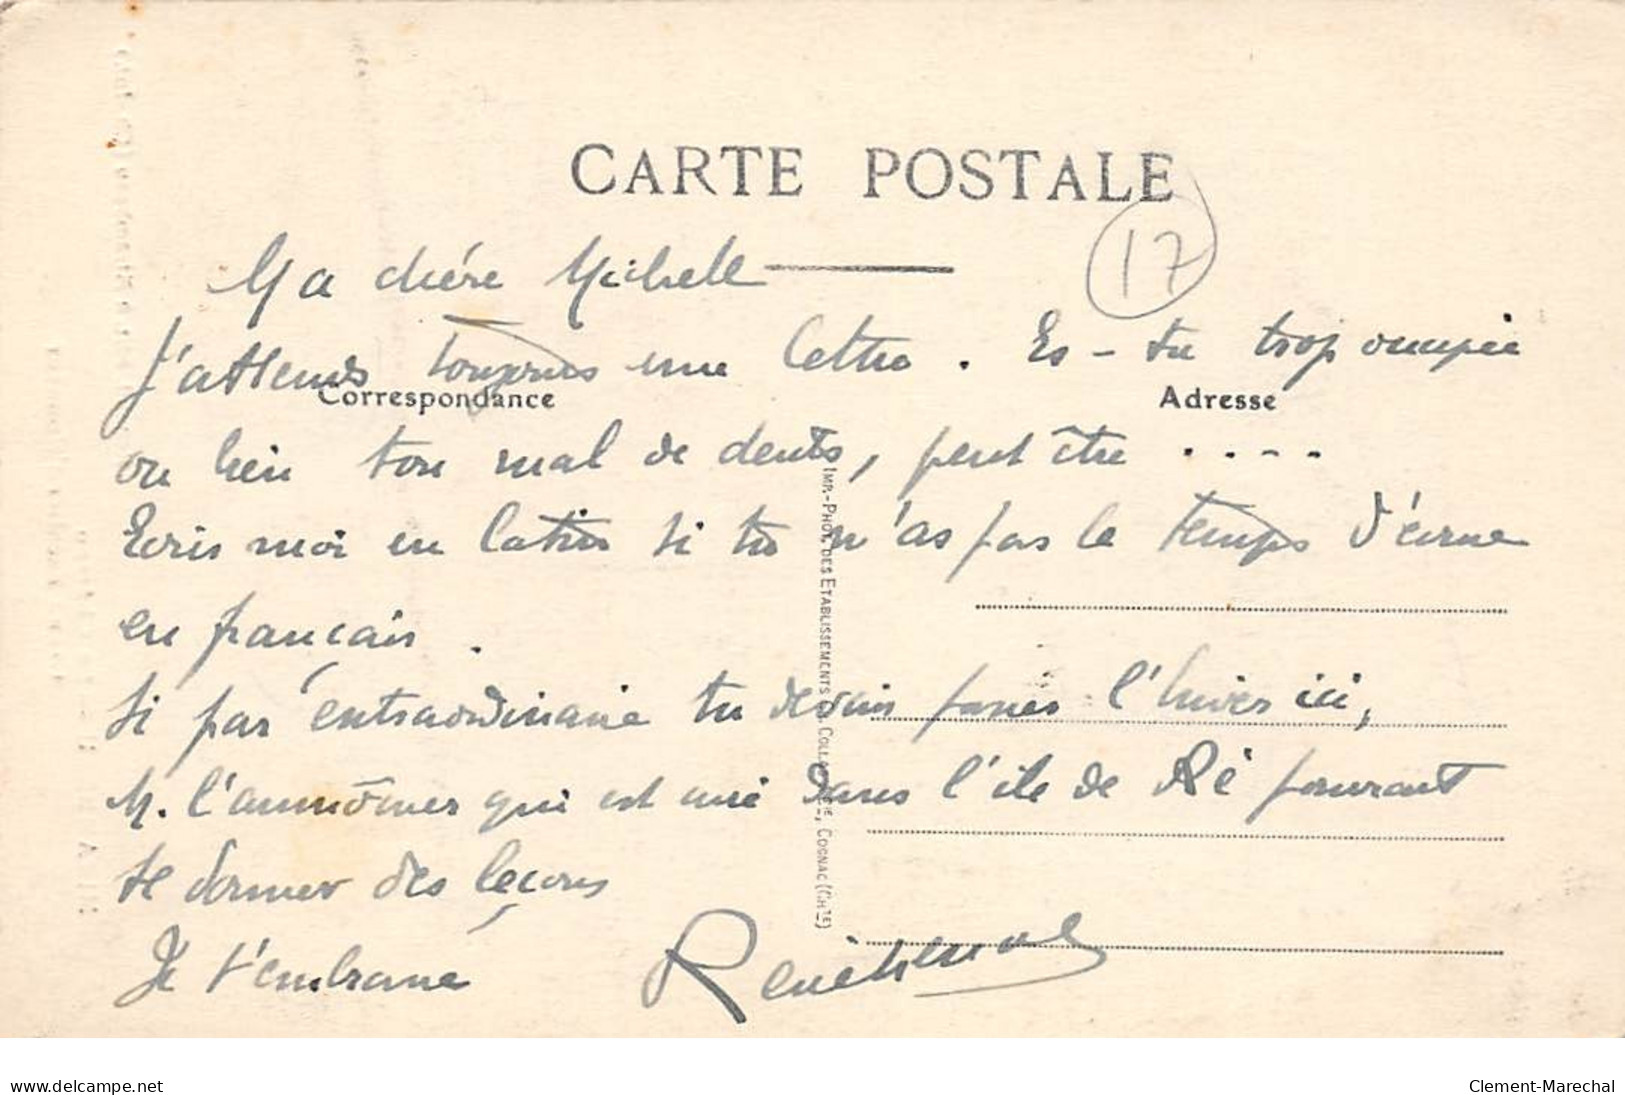 CARTE POSTALE
17
Ma chère Michelle
J'attends toujours une lettre. Es-tu trop occupée
Correspondance
Adresse
ou bien ton mal de dents, peut être ....
Ecris moi en latin si tu n'as pas le temps d'écrire
en français.
Si par extraordinaire tu devais passer l'hiver ici,
M. l'aumônier qui est curé dans l'île de Ré pourrait
te donner des leçons
Je t'embrasse
IMP.-PHOT. DES ETABLISSEMENTS COGNAC (CH.TE)
www.delcampe.net
Clement-Marechal